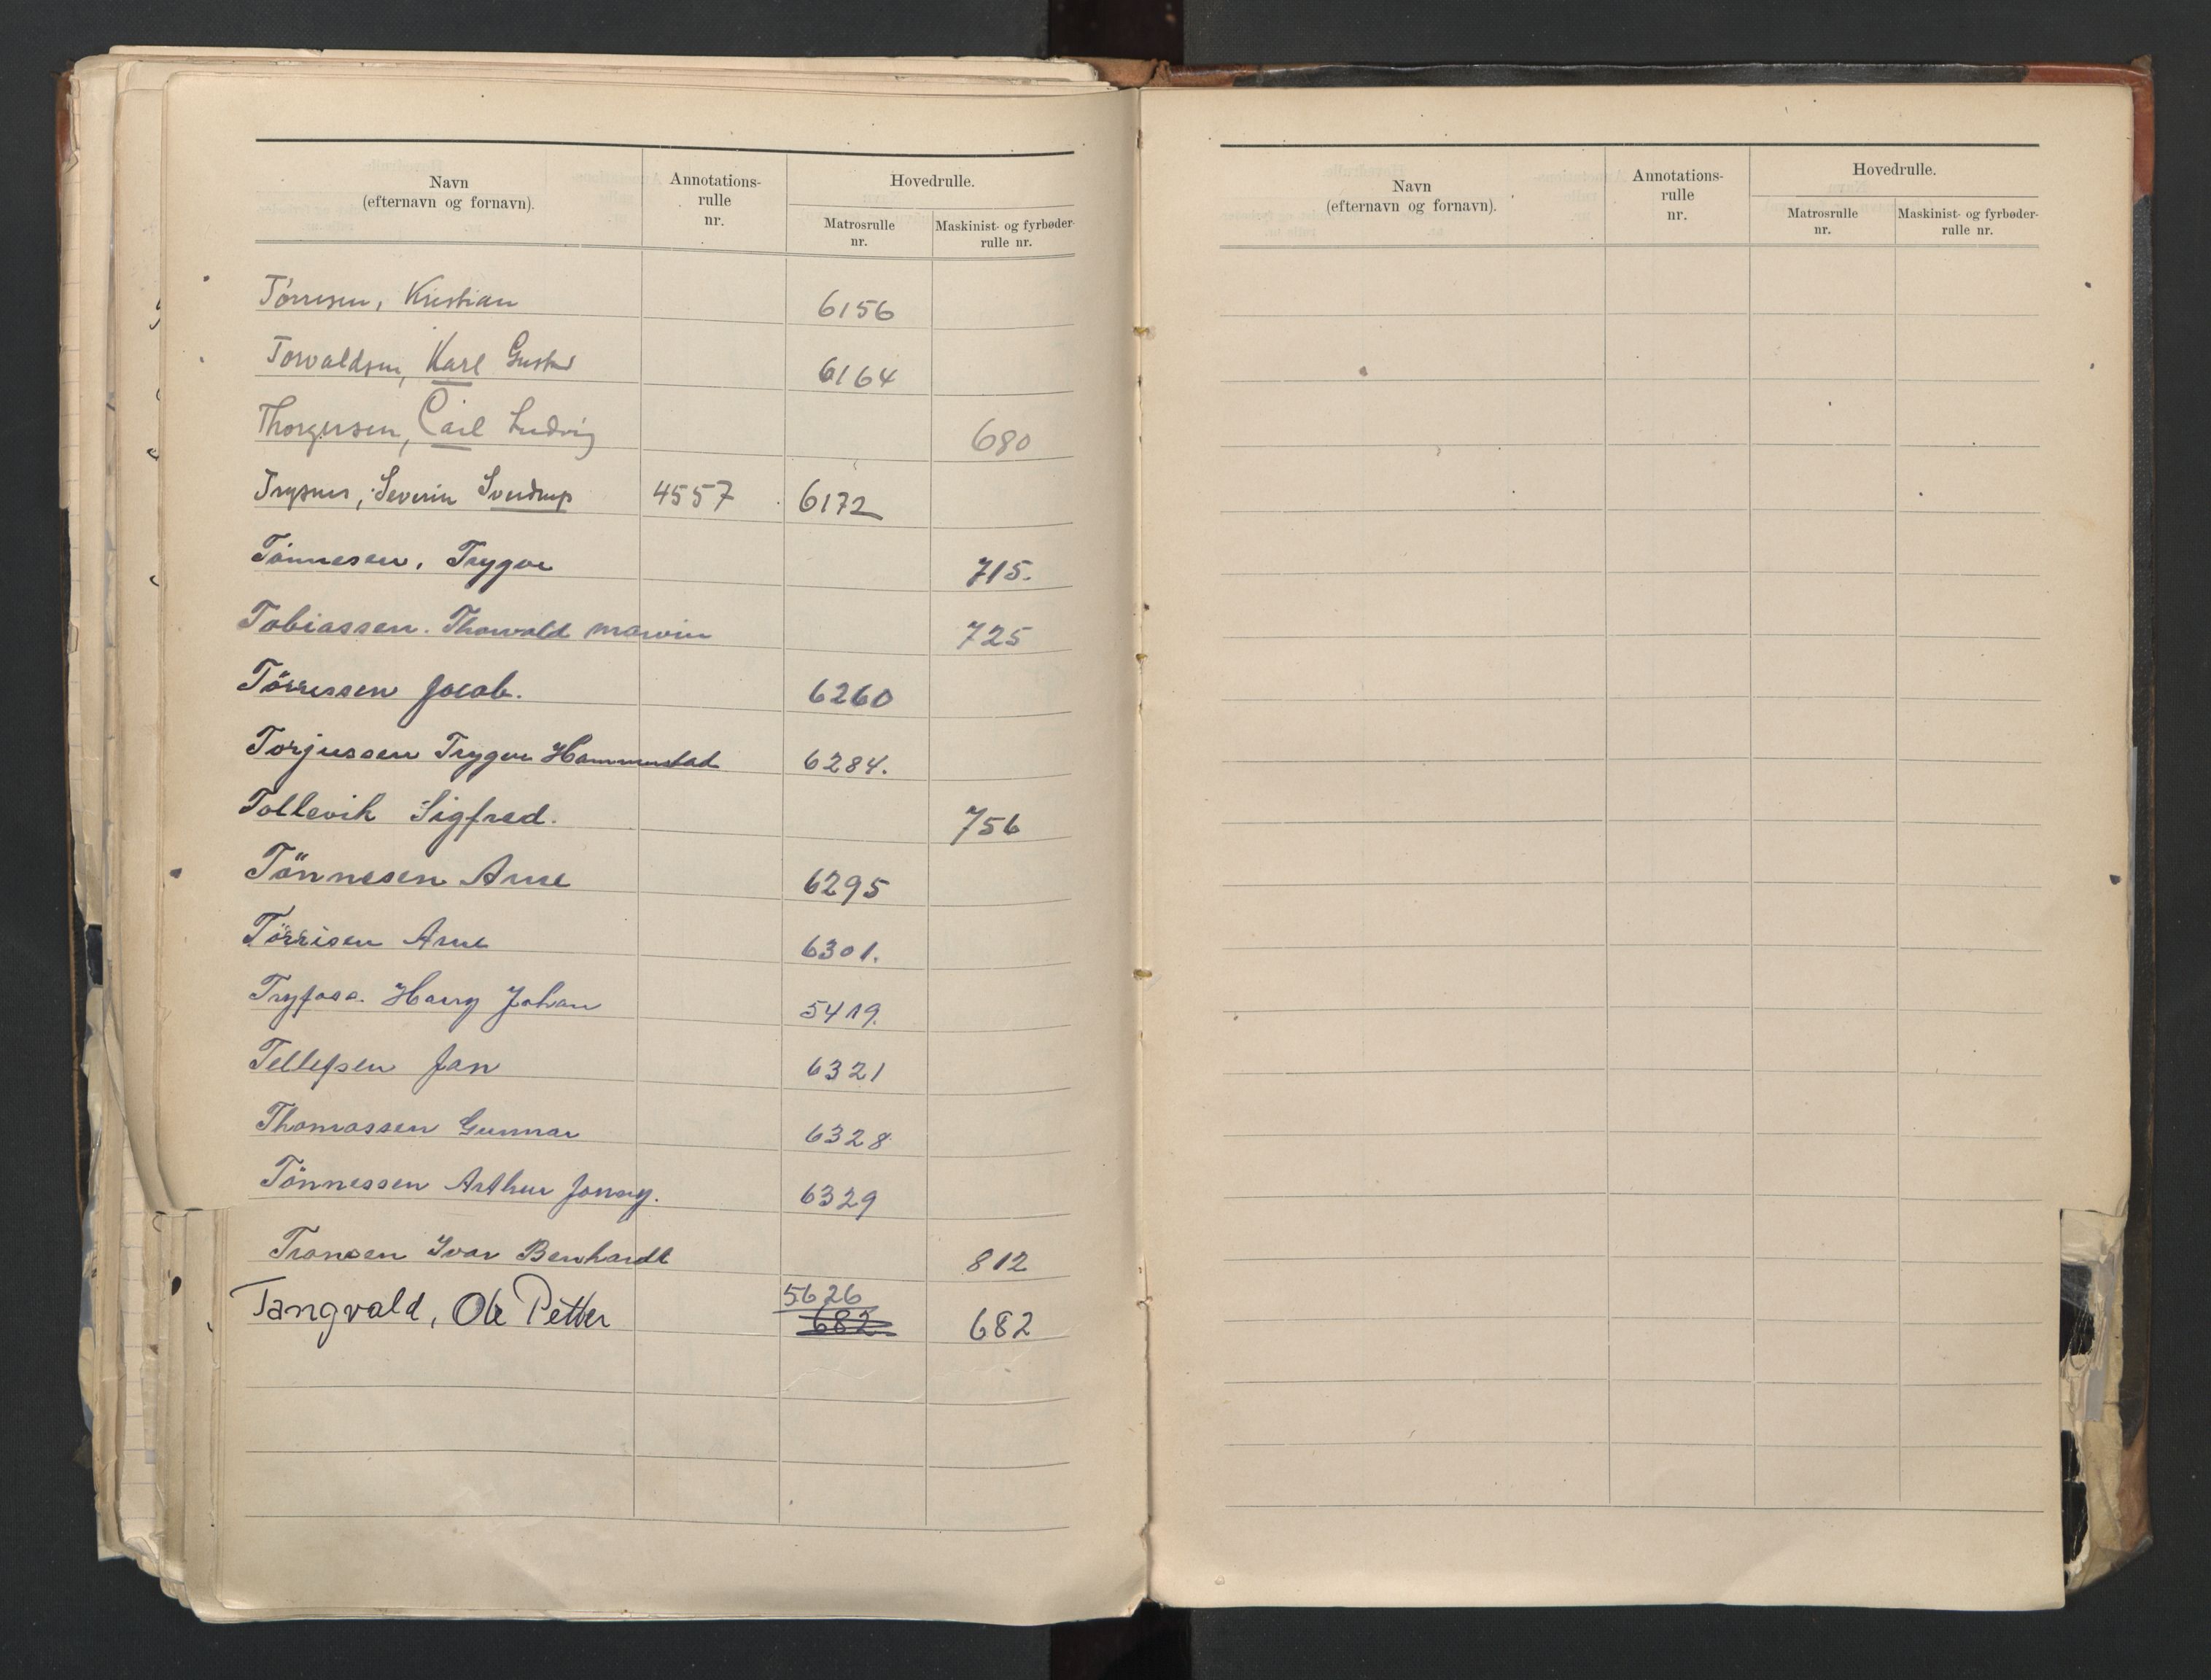 Navn
(efternavn og fornavn).
Annotations-
rulle
nr.
Hovedrulle.
Matrosrulle
nr.
Maskinist- og fyrbøder-
rulle nr.
Tørresen, Kristian 6156
Torvaldsen, Karl Gustav 6164
Thorgersen, Carl Ludvig 680
Severin Sverdrup 4557 6172
Tönnesen, Trygve 715.
Tobiassen. Thorvald Marvin 725
Törressen Jacob. 6260
Torjussen Trygve Hammerstad 6284.
Tollevik Sigfred. 756
Tönnesen Arne 6295
Törrisen Arne 6301.
Tryfoss. Harry Johan 5419.
Tellefsen Jan 6321
Thomassen Gunnar 6328
Tönnessen Arthur Jonny. 6329
Tronsen Ivar Benhardt 812
Tangvald, Ole Petter 5626 682 682
Navn
(efternavn og fornavn).
Annotations-
rulle
nr.
Hovedrulle.
Matrosrulle
nr.
Maskinist- og fyrbøder-
rulle nr.